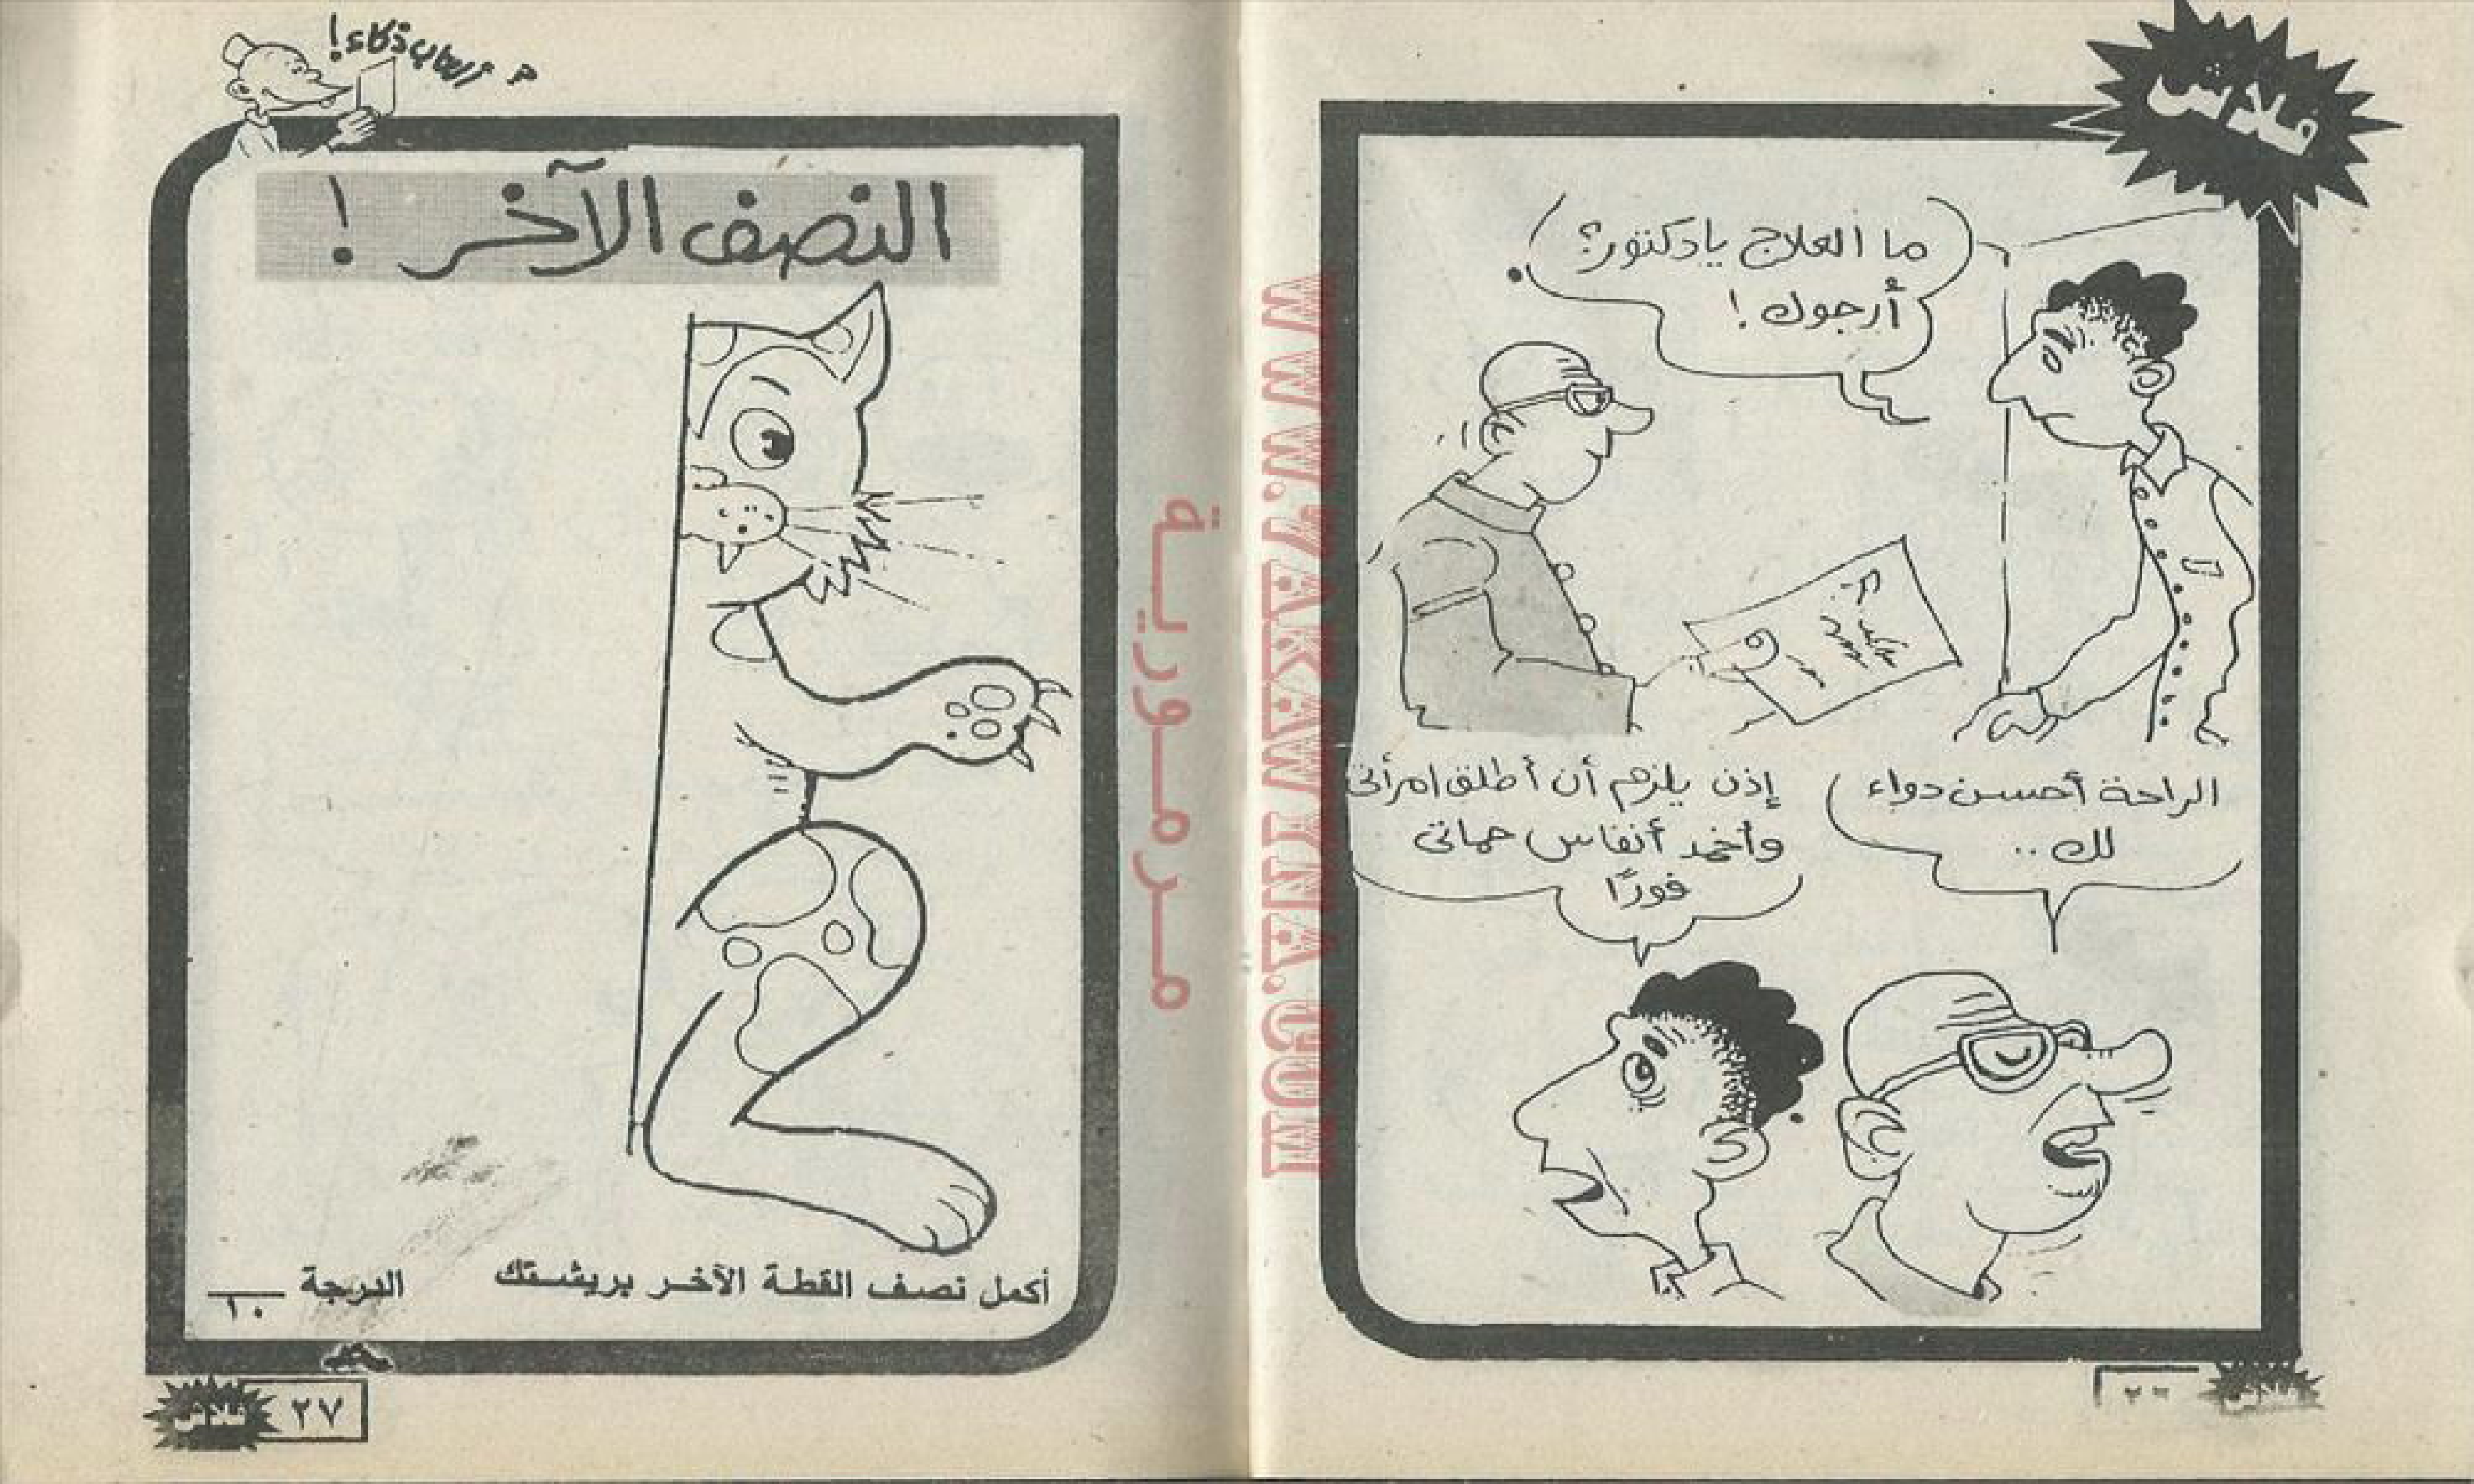 فلاش
ما العلاج يا دكتور؟
أرجوك!
الراحة أحسن دواء
لك ..
إذن يلزم أن أطلق امرأتى
وأخمد أنفاس حماتى
فورًا
فلاش
٢٦
WWW.ZAKAWYNA.COM
مـرمـوريـة
ألعاب ذكاء!
النصف الآخر !
أكمل نصف القطة الآخر بريشتك
الدرجة
١٠
٢٧
فلاش